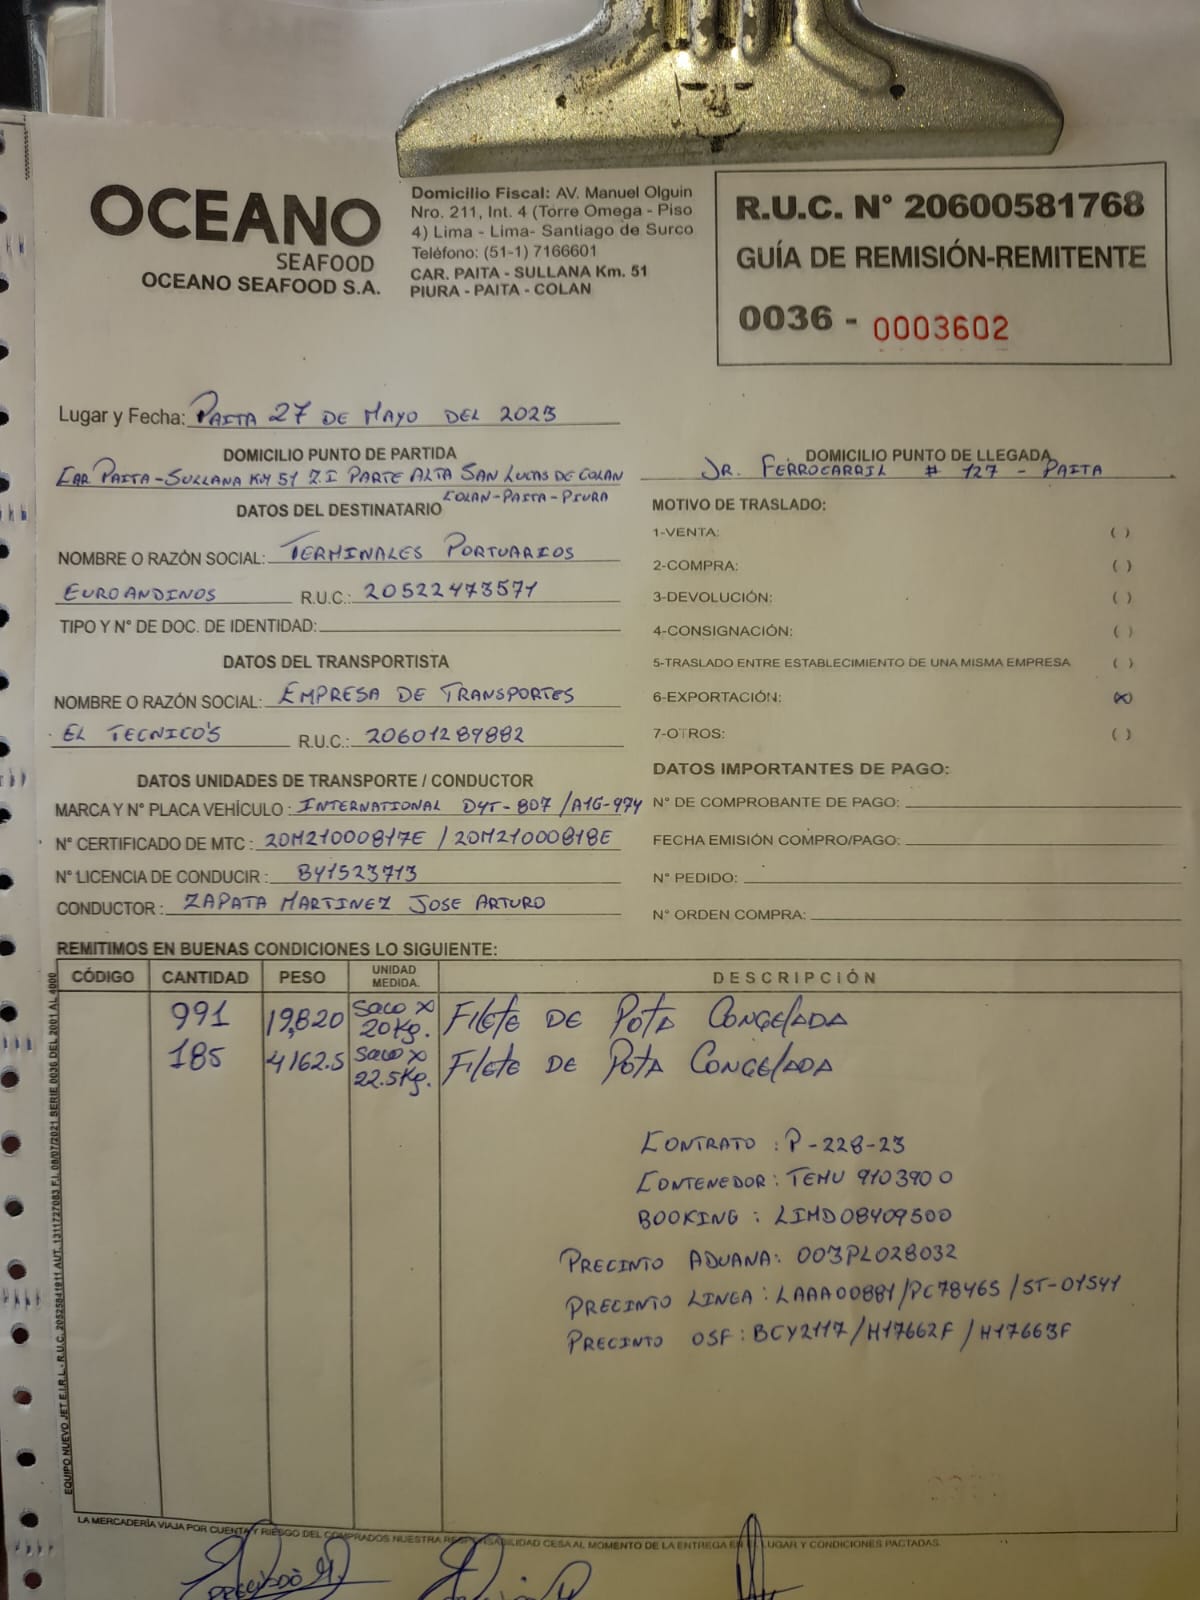 OCEANO
SEAFOOD
OCEANO SEAFOOD S.A.
Domicilio Fiscal: AV. Manuel Olguin
Nro. 211, Int. 4 (Torre Omega - Piso
4) Lima - Lima- Santiago de Surco
Teléfono: (51-1) 7166601
CAR. PAITA - SULLANA Km. 51
PIURA - PAITA - COLAN
R.U.C. N° 20600581768
GUÍA DE REMISIÓN-REMITENTE
0036 - 0003602
Lugar y Fecha: PAITA 27 DE MAYO DEL 2023
DOMICILIO PUNTO DE PARTIDA
CAR PAITA-SULLANA KM 51 Z.I PARTE ALTA SAN LUCAS DE COLAN
COLAN-PAITA-PIURA
DOMICILIO PUNTO DE LLEGADA
JR. FERROCARRIL # 127 - PAITA
DATOS DEL DESTINATARIO
NOMBRE O RAZÓN SOCIAL: TERMINALES PORTUARIOS
EUROANDINOS R.U.C.: 20522473571
TIPO Y N° DE DOC. DE IDENTIDAD:
DATOS DEL TRANSPORTISTA
NOMBRE O RAZÓN SOCIAL: EMPRESA DE TRANSPORTES
EL TECNICO'S R.U.C.: 20601289882
MOTIVO DE TRASLADO:
1-VENTA: ( )
2-COMPRA: ( )
3-DEVOLUCIÓN: ( )
4-CONSIGNACIÓN: ( )
5-TRASLADO ENTRE ESTABLECIMIENTO DE UNA MISMA EMPRESA ( )
6-EXPORTACIÓN: (X)
7-OTROS: ( )
DATOS UNIDADES DE TRANSPORTE / CONDUCTOR
MARCA Y N° PLACA VEHÍCULO: INTERNATIONAL D4T-807 /A1G-974
N° CERTIFICADO DE MTC: 20M21000817E / 20M21000818E
N° LICENCIA DE CONDUCIR: B41523713
CONDUCTOR: ZAPATA MARTINEZ JOSE ARTURO
DATOS IMPORTANTES DE PAGO:
N° DE COMPROBANTE DE PAGO:
FECHA EMISIÓN COMPRO/PAGO:
N° PEDIDO:
N° ORDEN COMPRA:
REMITIMOS EN BUENAS CONDICIONES LO SIGUIENTE:
CÓDIGO CANTIDAD PESO UNIDAD MEDIDA. DESCRIPCIÓN
991 19,820 Saco x 20Kg. FILETE DE POTA CONGELADA
185 4162.5 Saco x 22.5Kg. FILETE DE POTA CONGELADA
CONTRATO : P-228-23
CONTENEDOR: TEMU 910390 0
BOOKING : LIMD08409500
PRECINTO ADUANA: 003PL028032
PRECINTO LINEA : LAAA00881/PC78465 /ST-01541
PRECINTO OSF: BCY2117/H17662F /H17663F
EQUIPO NUEVO JET E.I.R.L - R.U.C. 20525841911 AUT. 1311727083 F.I. 08/07/2021 SERIE 0036 DEL 2001 AL 4000
LA MERCADERÍA VIAJA POR CUENTA Y RIESGO DEL COMPRADOS NUESTRA RESPONSABILIDAD CESA AL MOMENTO DE LA ENTREGA EN EL LUGAR Y CONDICIONES PACTADAS.